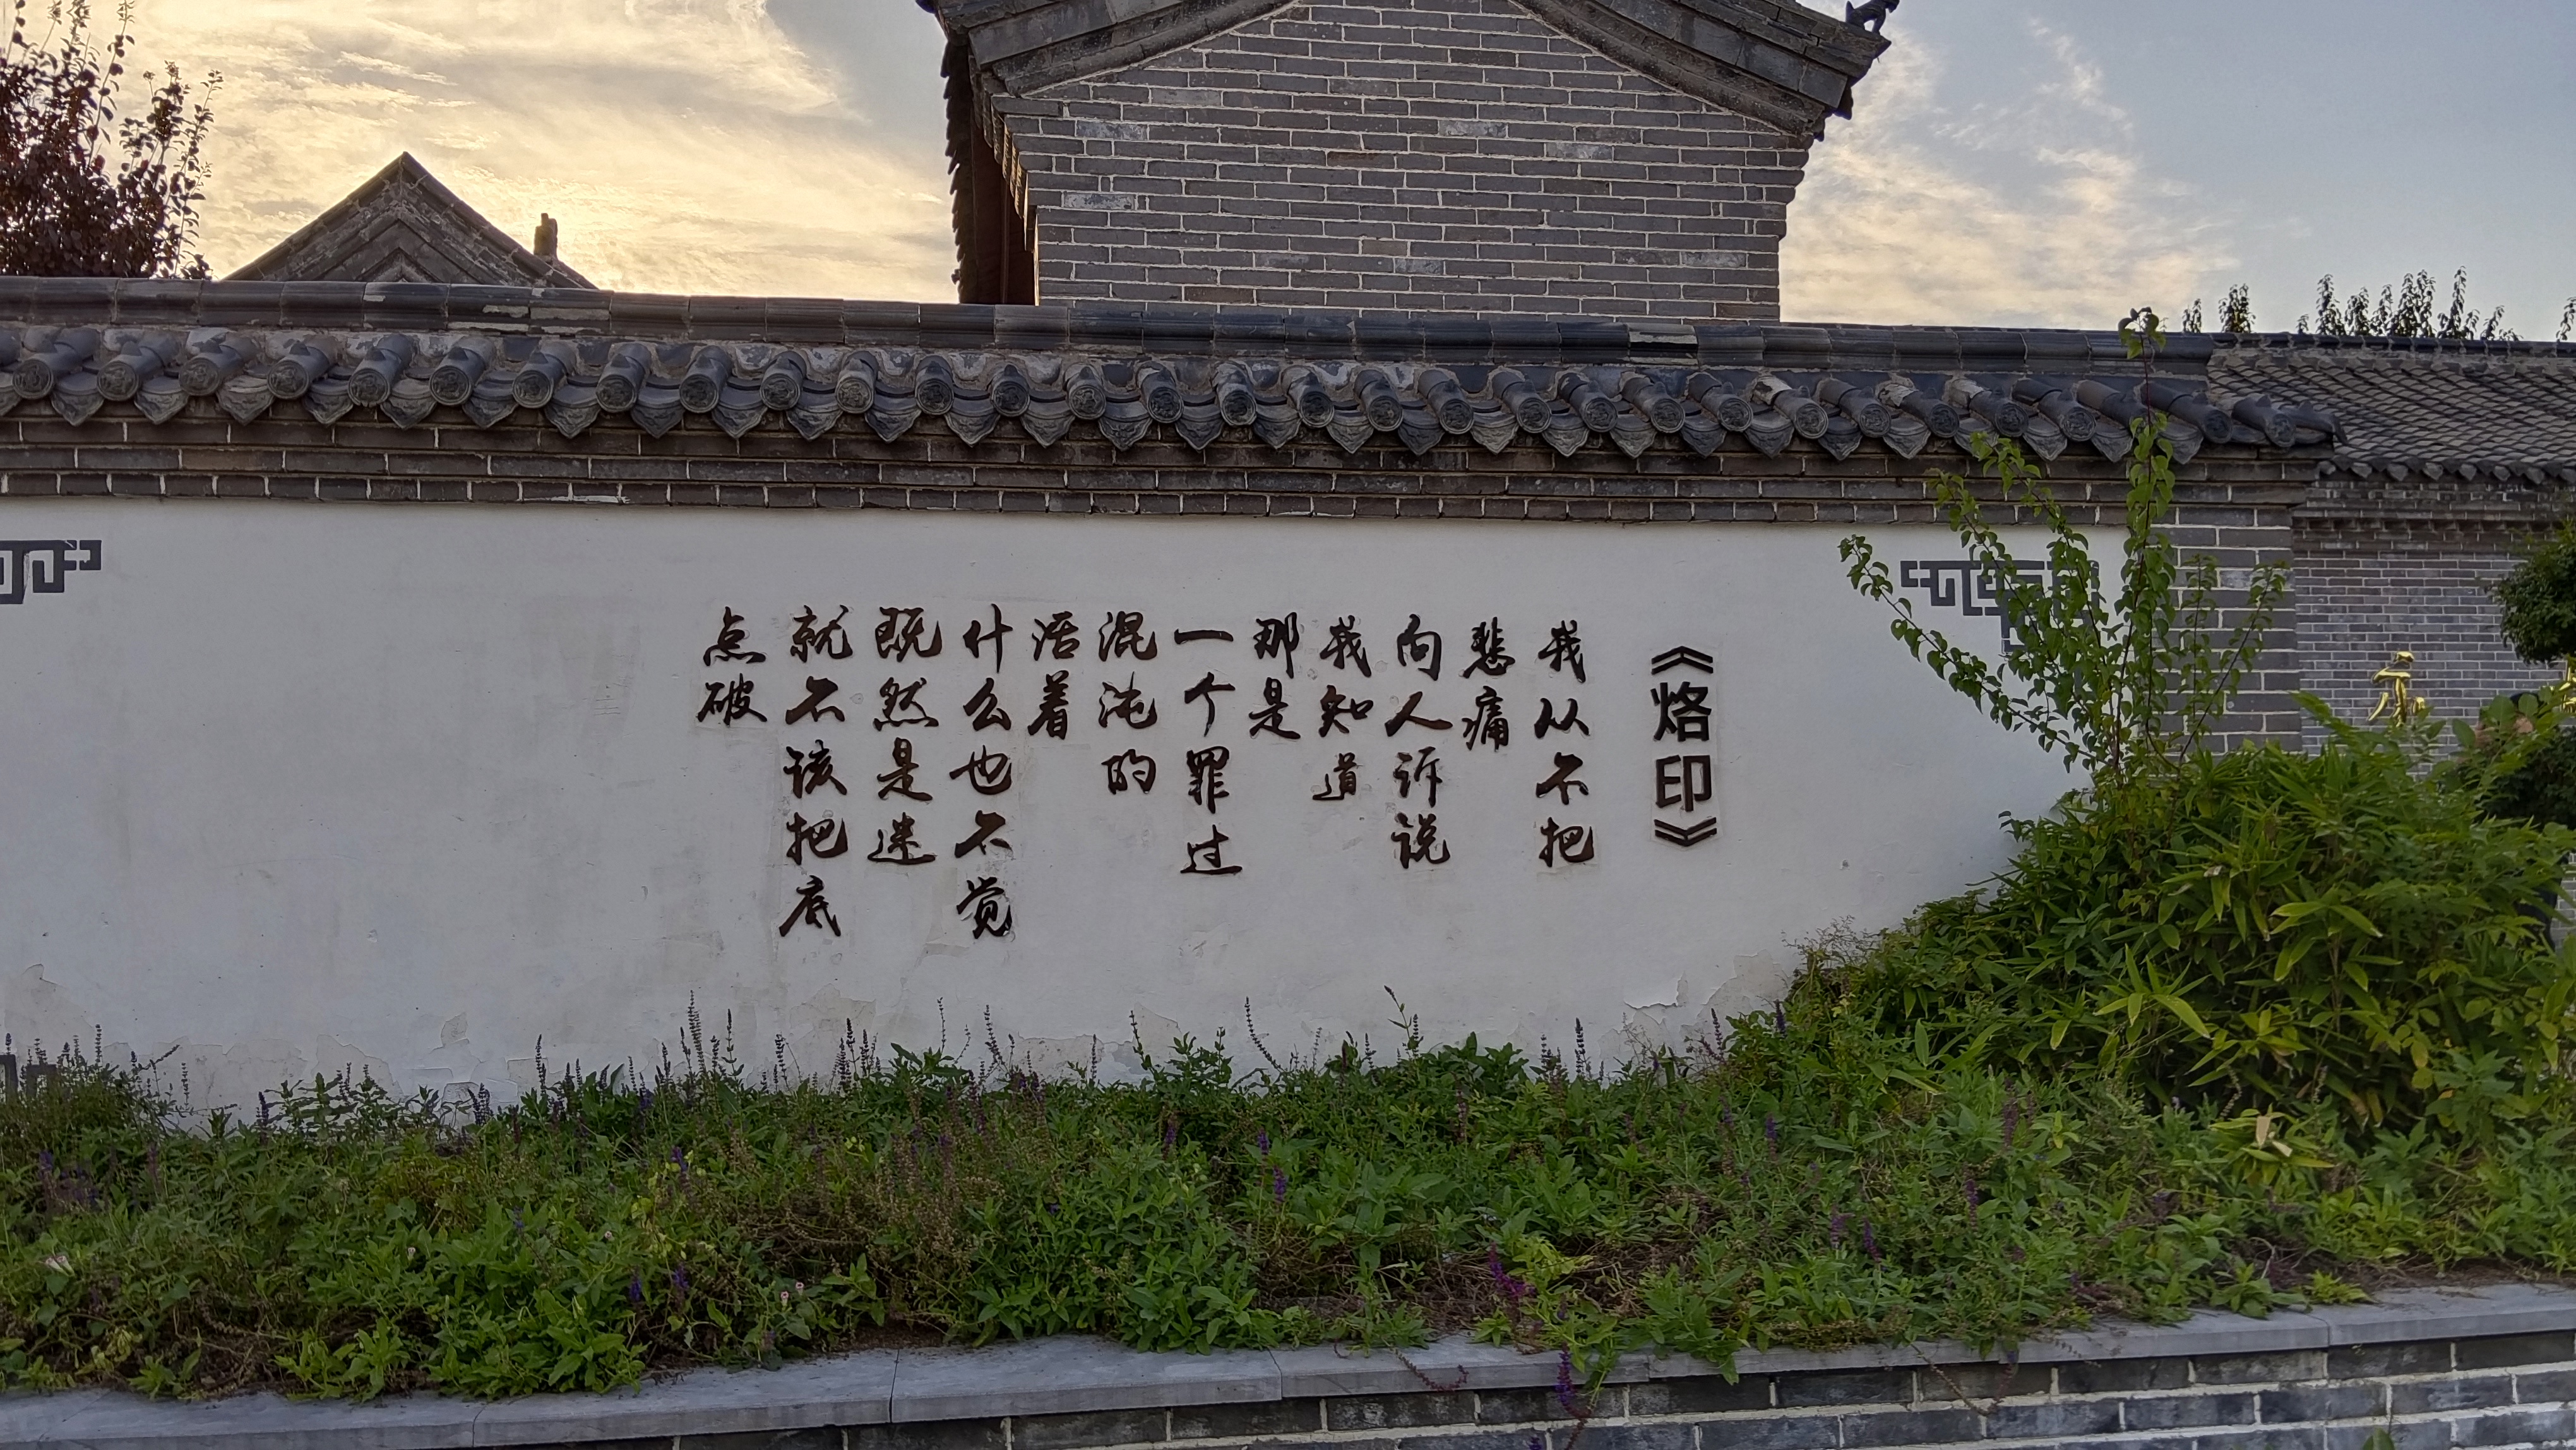 《烙印》
我从不把
悲痛
向人诉说
我知道
那是
一个罪过
混沌的
活着
什么也不觉
既然是迷
就不该把底
点破